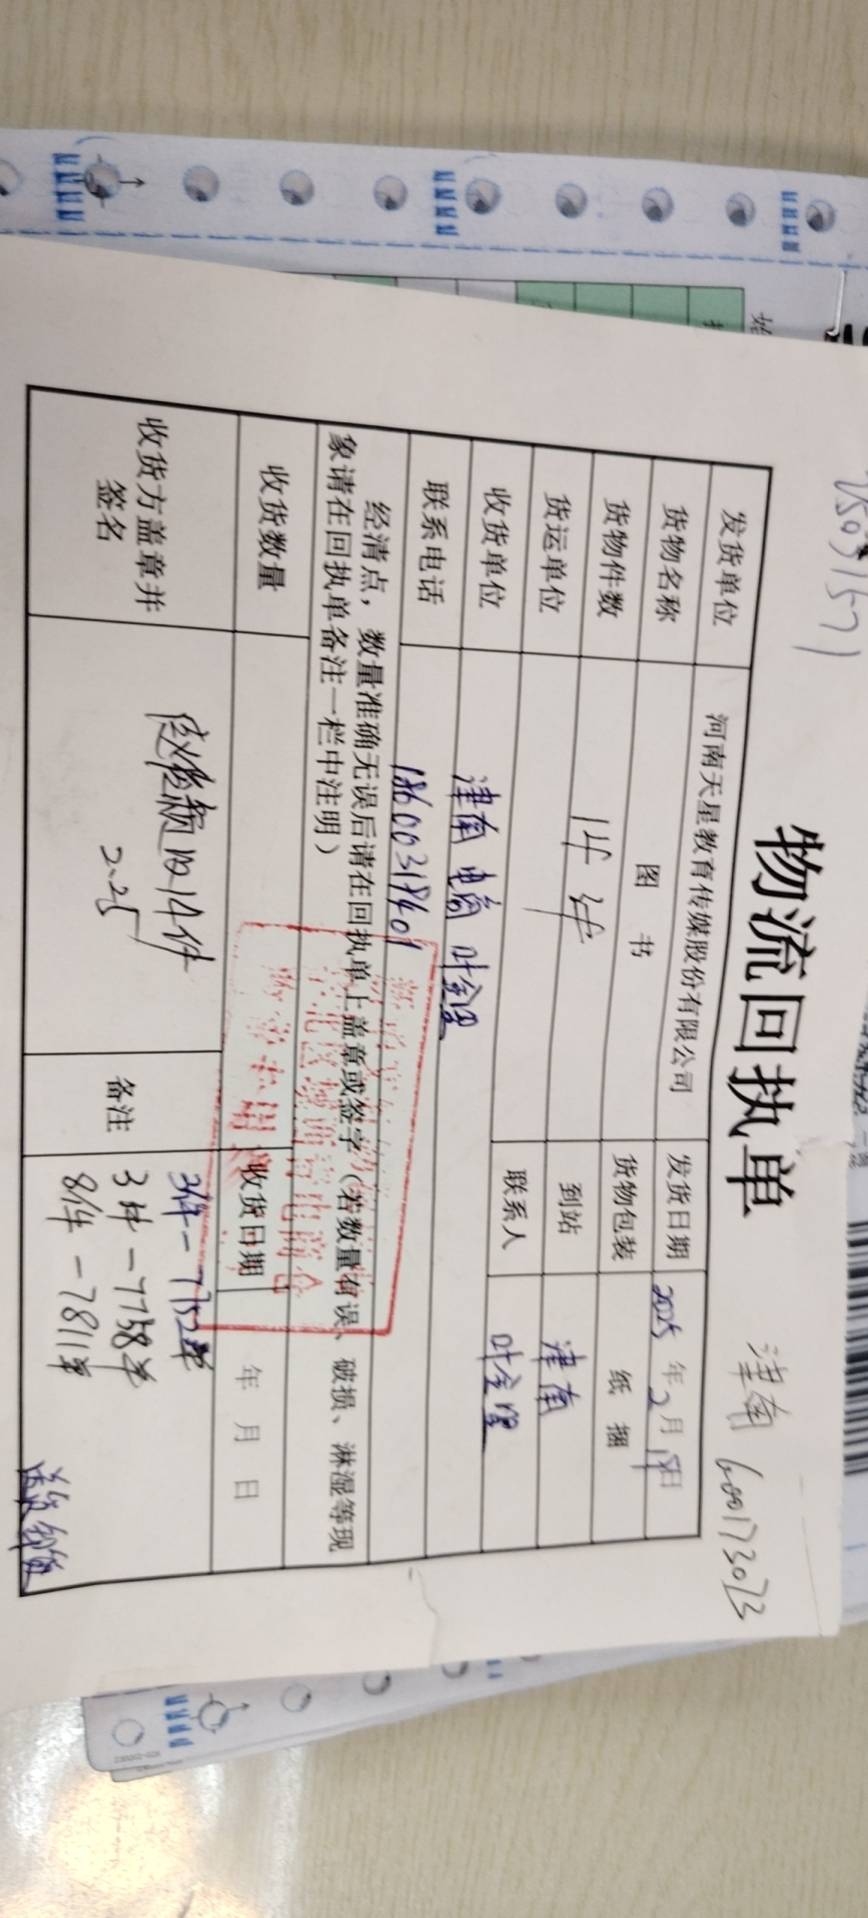 物流回执单
津南
发货单位 河南天星教育传媒股份有限公司 发货日期 2025年2月
货物名称 图 书 货物包装 纸 捆
货物件数 14件 到站 津南
货运单位
收货单位 津南 电商 联系人
联系电话
经清点，数量准确无误后请在回执单上盖章或签字（若数量有误、破损、淋湿等现
象请在回执单备注一栏中注明）
收货数量 收货日期 年 月 日
收货方盖章并
签名
收14件
2.25
备注
3件－7752单
3件－7758单
8件－7811单